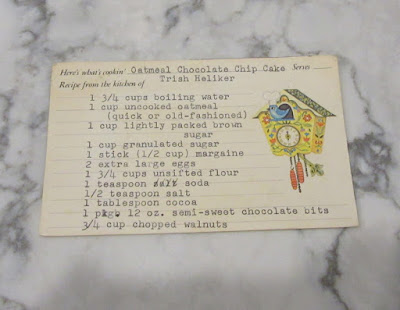 Here's what's cookin' Oatmeal Chocolate Chip Cake Serves
Recipe from the kitchen of Trish Heliker
1 3/4 cups boiling water
1 cup uncooked oatmeal
(quick or old-fashioned)
1 cup lightly packed brown
sugar
1 cup granulated sugar
1 stick (1/2 cup) margaine
2 extra large eggs
1 3/4 cups unsifted flour
1 teaspoon salt soda
1/2 teaspoon salt
1 tablespoon cocoa
1 pkg. 12 oz. semi-sweet chocolate bits
3/4 cup chopped walnuts